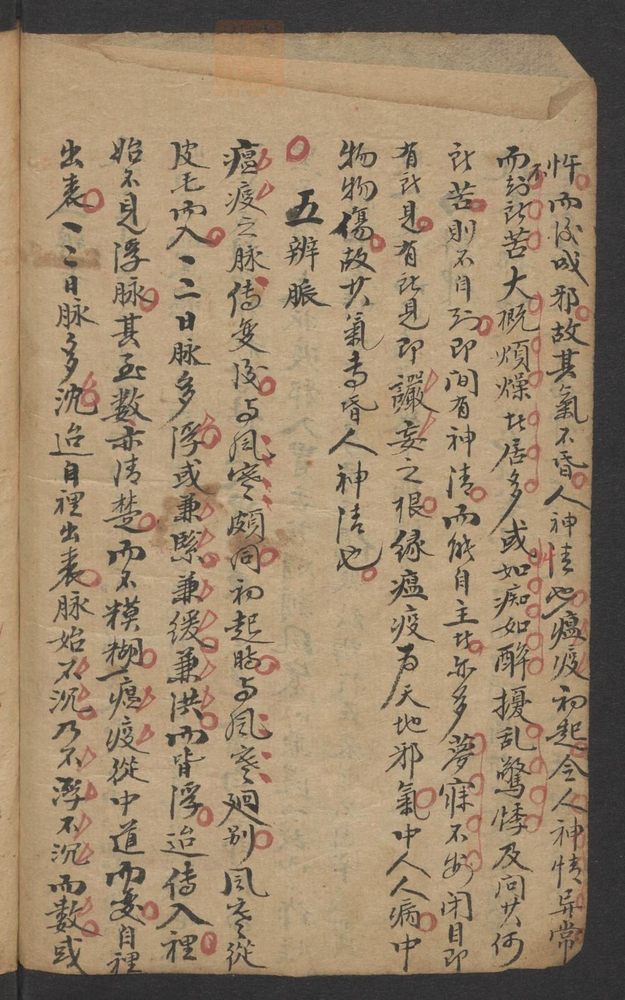 忤而後成邪故其氣不昏人神情也瘟疫初起令人神情異常
而不知所苦大概煩燥者居多或如痴如醉擾乱驚悸及问其何
所苦則不自知即间有神清而能自主者亦多夢寐不安闭目即
有所見有所見即讝妄之根緣瘟疫为天地邪氣中人人病中
物物傷故其氣專昏人神情也
五辨脈
瘟疫之脉傳变後与風寒頗同初起時与風寒廻别風寒從
皮毛而入一二日脉多浮或兼緊兼緩兼洪而皆浮迨傳入裡
始不見浮脉其至數亦清楚而不糢糊瘟疫從中道而变自裡
出表一二日脉多沈迨自裡出表脉始不沉乃不浮不沉而數或